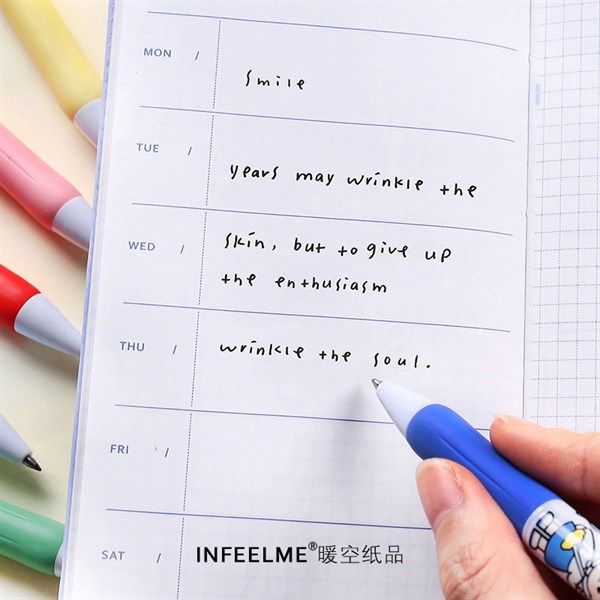 MON /
smile
TUE /
years may wrinkle the
WED /
skin, but to give up
the enthusiasm
THU /
wrinkle the soul.
FRI /
SAT /
INFEELME®暖空纸品